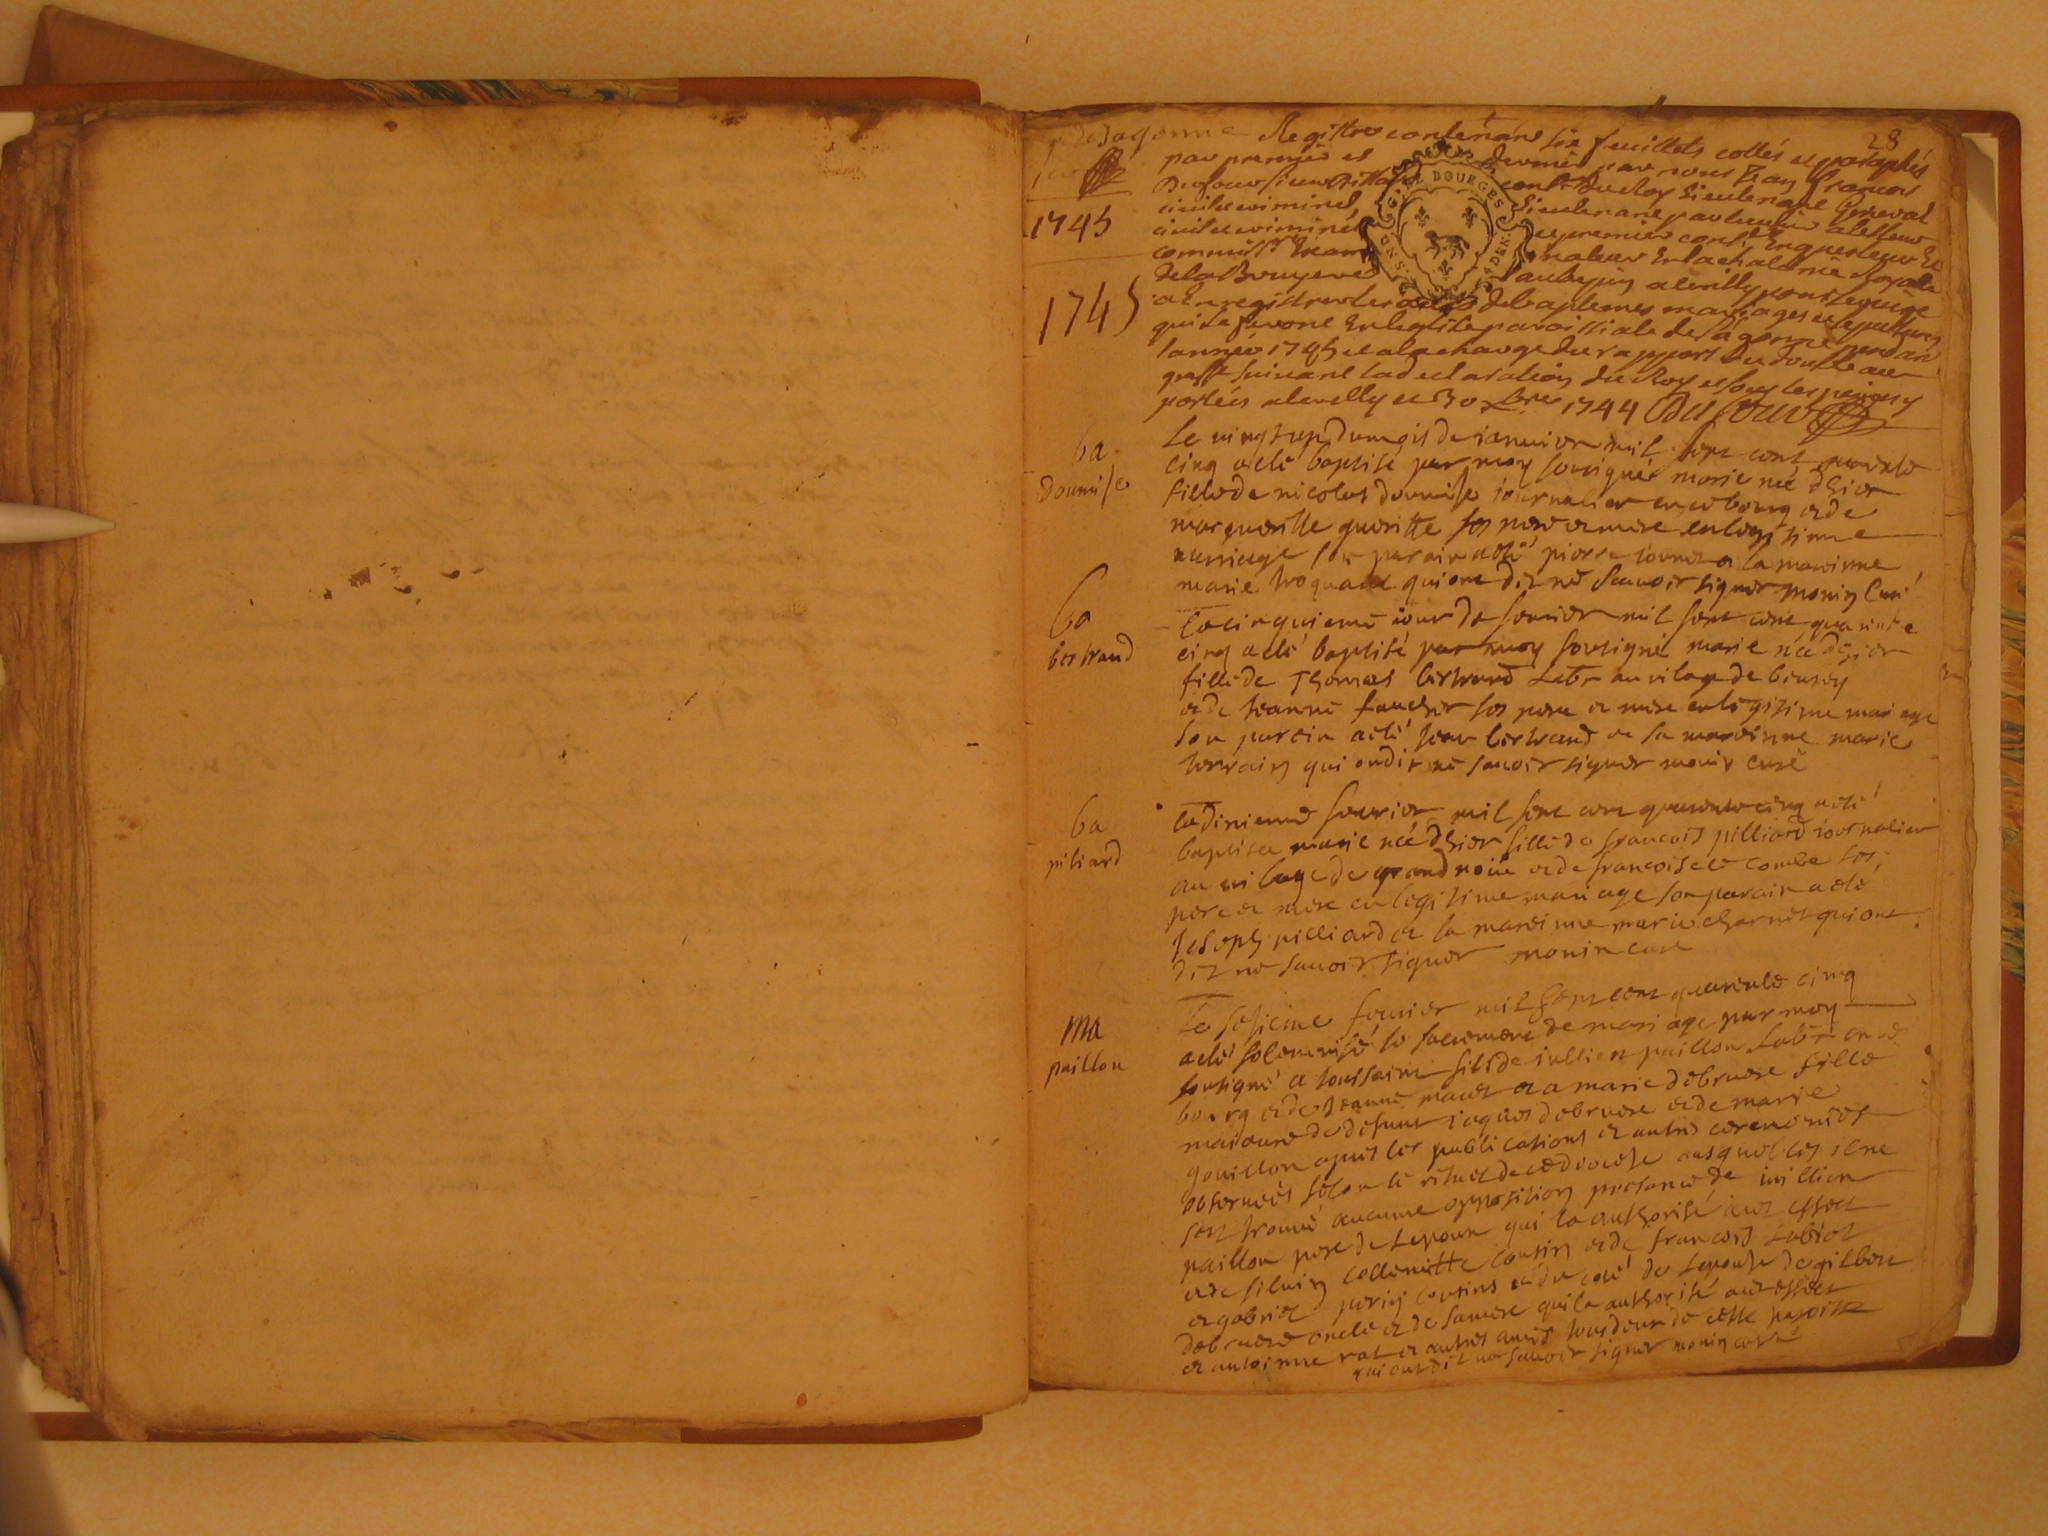 de Sagonne Registre contenant six feuillets cottés et paraphés
28
par premier et dernier par nous Jean francois
Dusour sieur conser du Roy Lieutenant General
1745
civil et criminel Lieutenant particulier assesseur
civil et criminel et premier conser Enquesteur Et
commissre Exam inateur En la chatelenie Royale
de la Bruyere l'aubepin pour servire
1745
a Enregistrer les actes de baptemes mariages et sepultures
qui se feront En leglise paroissiale de Sagonne pendant
lannée 1745 et a la charge du rapport du double au
greffe suivant la declaration du Roy et sous les peines y
portées 30 xbre 1744 Dusour
ba
doumise
Le vingt du mois de ianuier mil sept cent quarante
cinq a eté baptisé par moy sousigné marie née dhier
fille de nicolas doumise iournalier en ce bourg et de
margueritte queritte ses pere et mere en legitime
mariage son parain a eté pierre et la mareinne
marie qui ont dit ne sauoir signer monin curé
ba
bertrand
Le cinquieme iour de feurier mil sept cent quarante
cinq a eté baptisé par moy sousigné marie née dhier
fille de Thomas bertrand Labr au vilage de
et de Jeanne faucher ses pere et mere en legitime mariage
son parein a eté Jean bertrand et sa mareinne marie
qui ont dit ne sauoir signer monin curé
ba
piliard
Le dixieme feurier mil sept cent quarante cinq a eté
baptisee marie née dhier fille de francois pilliard iournalier
au vilage de grand noiie et de francoise combe ses
pere et mere en legitime mariage son parain a eté
Joseph pilliard et la mareinne marie charnet qui ont
dit ne sauoir signer monin curé
ma
paillon
Le sesieme feurier mil sept cent quarente cinq
a eté solennisé le sacrement de mariage par moy
sousigné a toussaint fils de iullien paillon Labr en ce
bourg et de Jeanne et a marie debruere fille
maieure de defunt iaques debruere et de marie
gouillon apres les publications et autres ceremonies
obseruées selon le rituel de ce diocese ausquelles il ne
sest trouué aucune opposition presance de iullien
paillon pere de lepoux qui la authorisé a cet effect
et de siluin collenitte cousin et de francois Labiot
et gabriel perin cousins et du coté de lepouse de gilbert
debruere oncle et de sa mere qui la authorisé a cet effect
et antoinne rat et autres amis tous deux de cette paroisse
qui ont dit ne sauoir signer monin curé